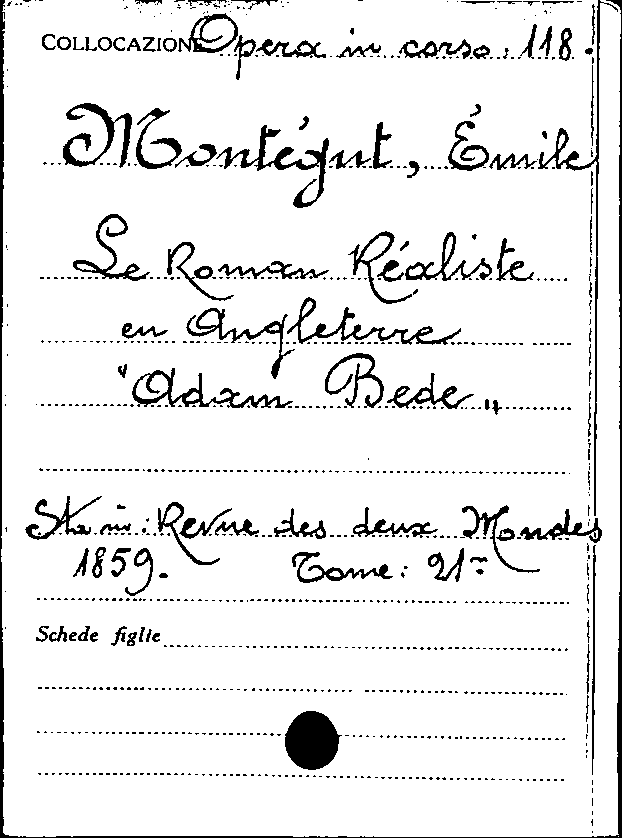 COLLOCAZIONE Opera in corso. 118.
Montégut, Émile
Le Roman Réaliste
en Angleterre
"Adam Bede„
Sta in: Revue des deux Mondes
1859. Tome: 21-
Schede figlie